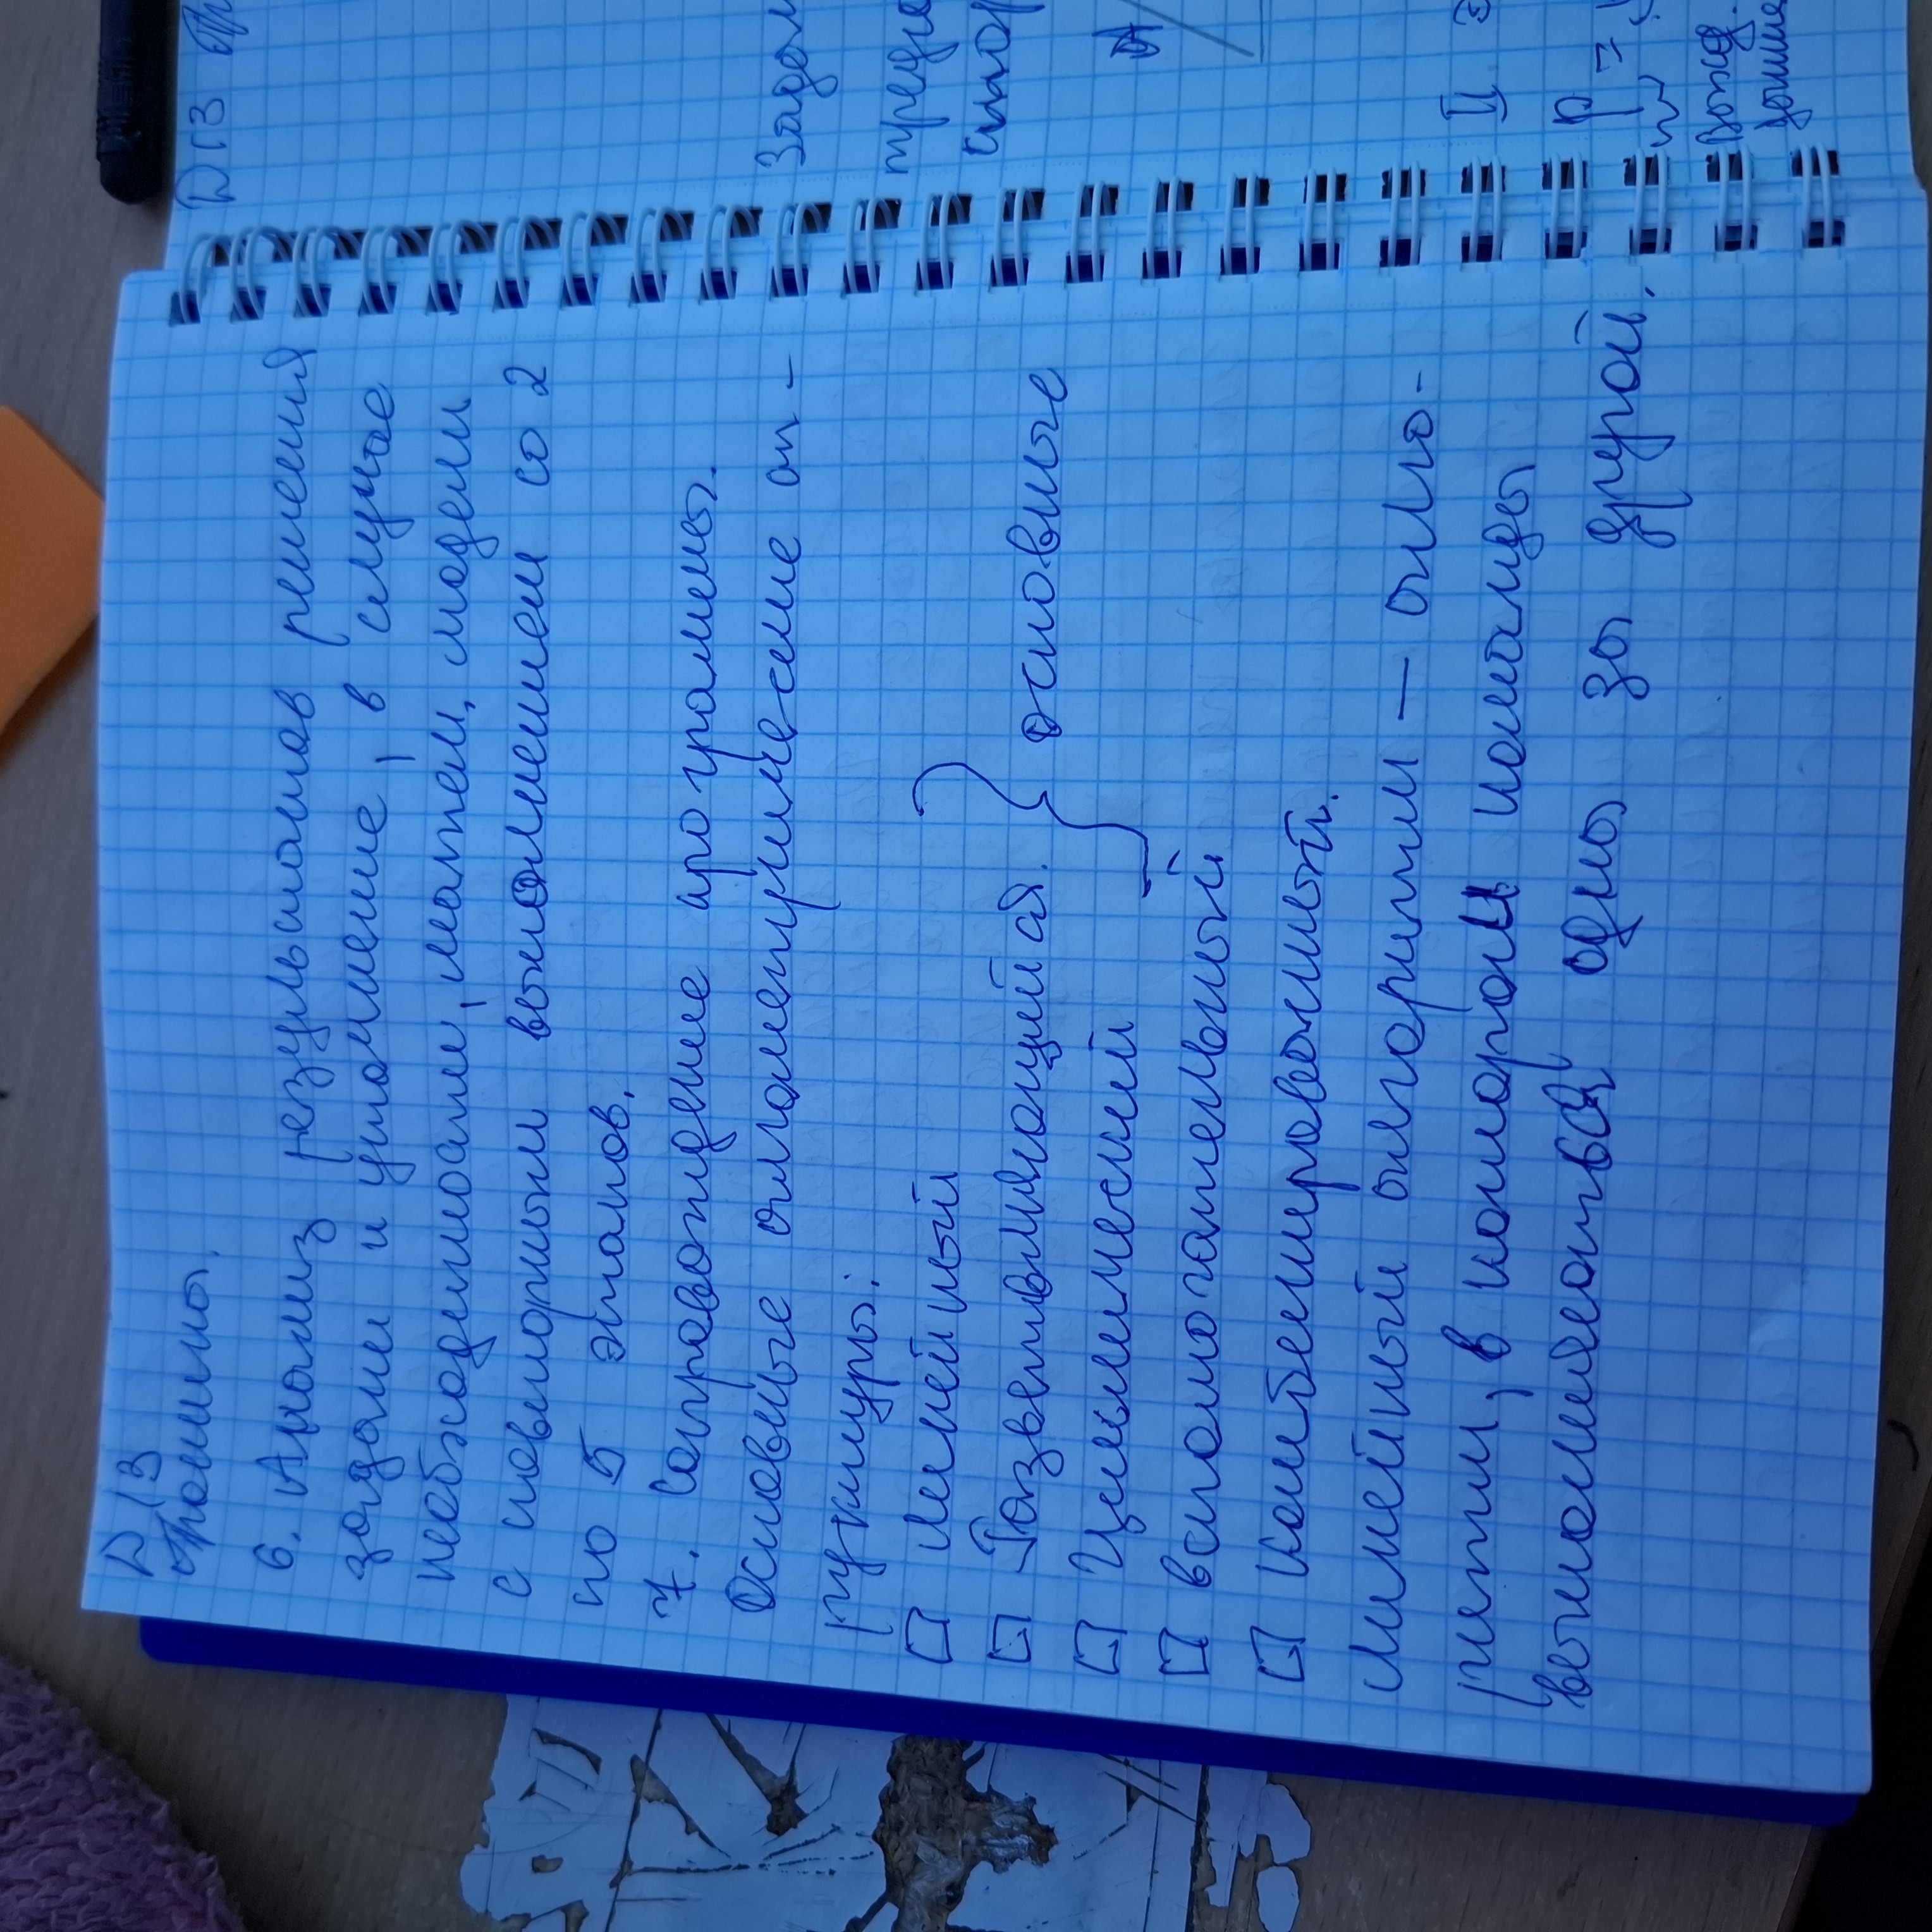 Д/З
6. Анализ результатов решения
задачи и уточнение, в случае
необходимости, матем. модели
с повторным выполнением со 2
по 5 этапов.
7. Сопровождение программы.
Основные алгоритмические ст-
руктуры:
линейный
Разветвляющийся.
Циклический
основные
вспомогательный
комбинированный.
Линейный алгоритм — алго-
ритм, в котором команды
выполняются одна за другой.
Д/З
Задан